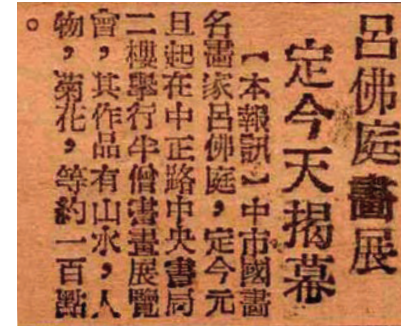 呂佛庭畫展
定今天揭幕
【本報訊】中市國畫
名畫家呂佛庭，定今元
旦起在中正路中央書局
二樓舉行半僧書畫展覽
會，其作品有山水，人
物，菊花，等約一百點
。